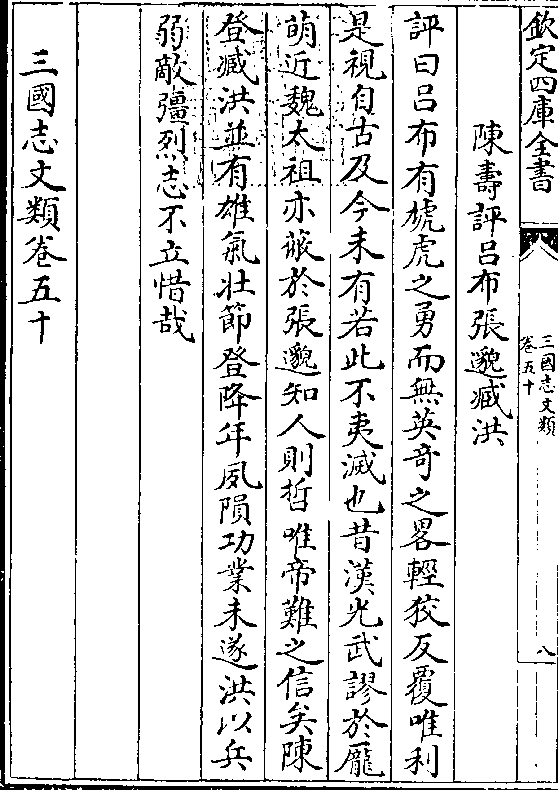 欽定四庫全書
三國志文類
卷五十
八
陳壽評呂布張邈臧洪
評曰呂布有虓虎之勇而無英奇之畧輕狡反覆唯利
是視自古及今未有若此不夷滅也昔漢光武謬於龐
萌近魏太祖亦蔽於張邈知人則哲唯帝難之信矣陳
登臧洪並有雄氣壯節登降年夙隕功業未遂洪以兵
弱敵彊烈志不立惜哉
三國志文類卷五十